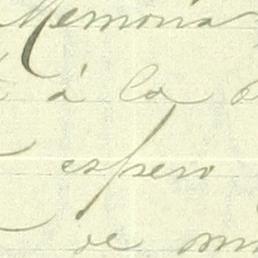 Memoria
á la
espero
de